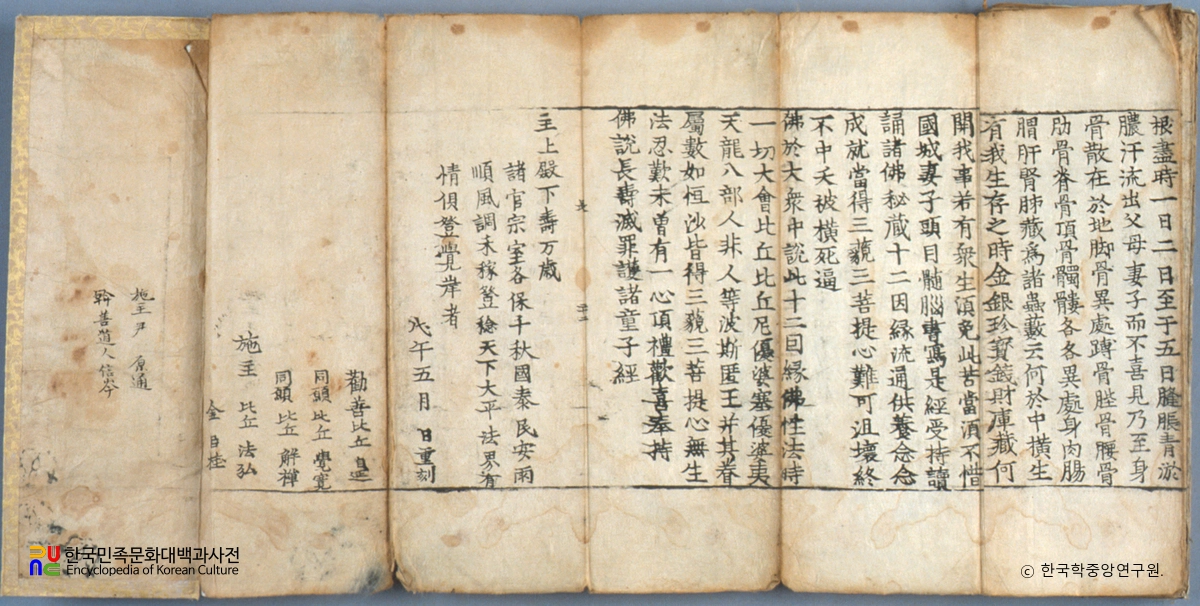 根盡時一日二日至于五日膖脹青淤
膿汗流出父母妻子而不喜見乃至身
骨散在於地脚骨異處䏝骨䏶骨腰骨
肋骨脊骨頂骨髑髏各各異處身肉腸
胃肝腎肺藏爲諸蟲藪云何於中橫生
有我生存之時金銀珍寳錢財庫藏何
開我事若有衆生湏免此苦當湏不惜
國城妻子頭目髄腦書寫是經受持讀
誦諸佛秘藏十二因緣流通供養念念
成就當得三藐三菩提心難可沮壞終
不中夭被橫死逼
佛於大衆中說此十二因緣佛性法時
一切大會比丘比丘尼優婆塞優婆夷
天龍八部人非人等波斯匿王并其眷
屬數如恒沙皆得三藐三菩提心無生
法忍歎未曾有一心頂禮歡喜奉持
佛說長壽滅罪護諸童子經
長
主上殿下壽万歲
諸官宗室各保千秋國泰民安雨
順風調禾稼登稔天下大平法界有
情俱登覺岸者
戊午五月 日重刻
勸善比丘
同願比丘 覺寬
同願比丘 解禪
施主 比丘 法弘
金
施主尹 通
幹善道人信岑
한국민족문화대백과사전
Encyclopedia of Korean Culture
ⓒ 한국학중앙연구원.